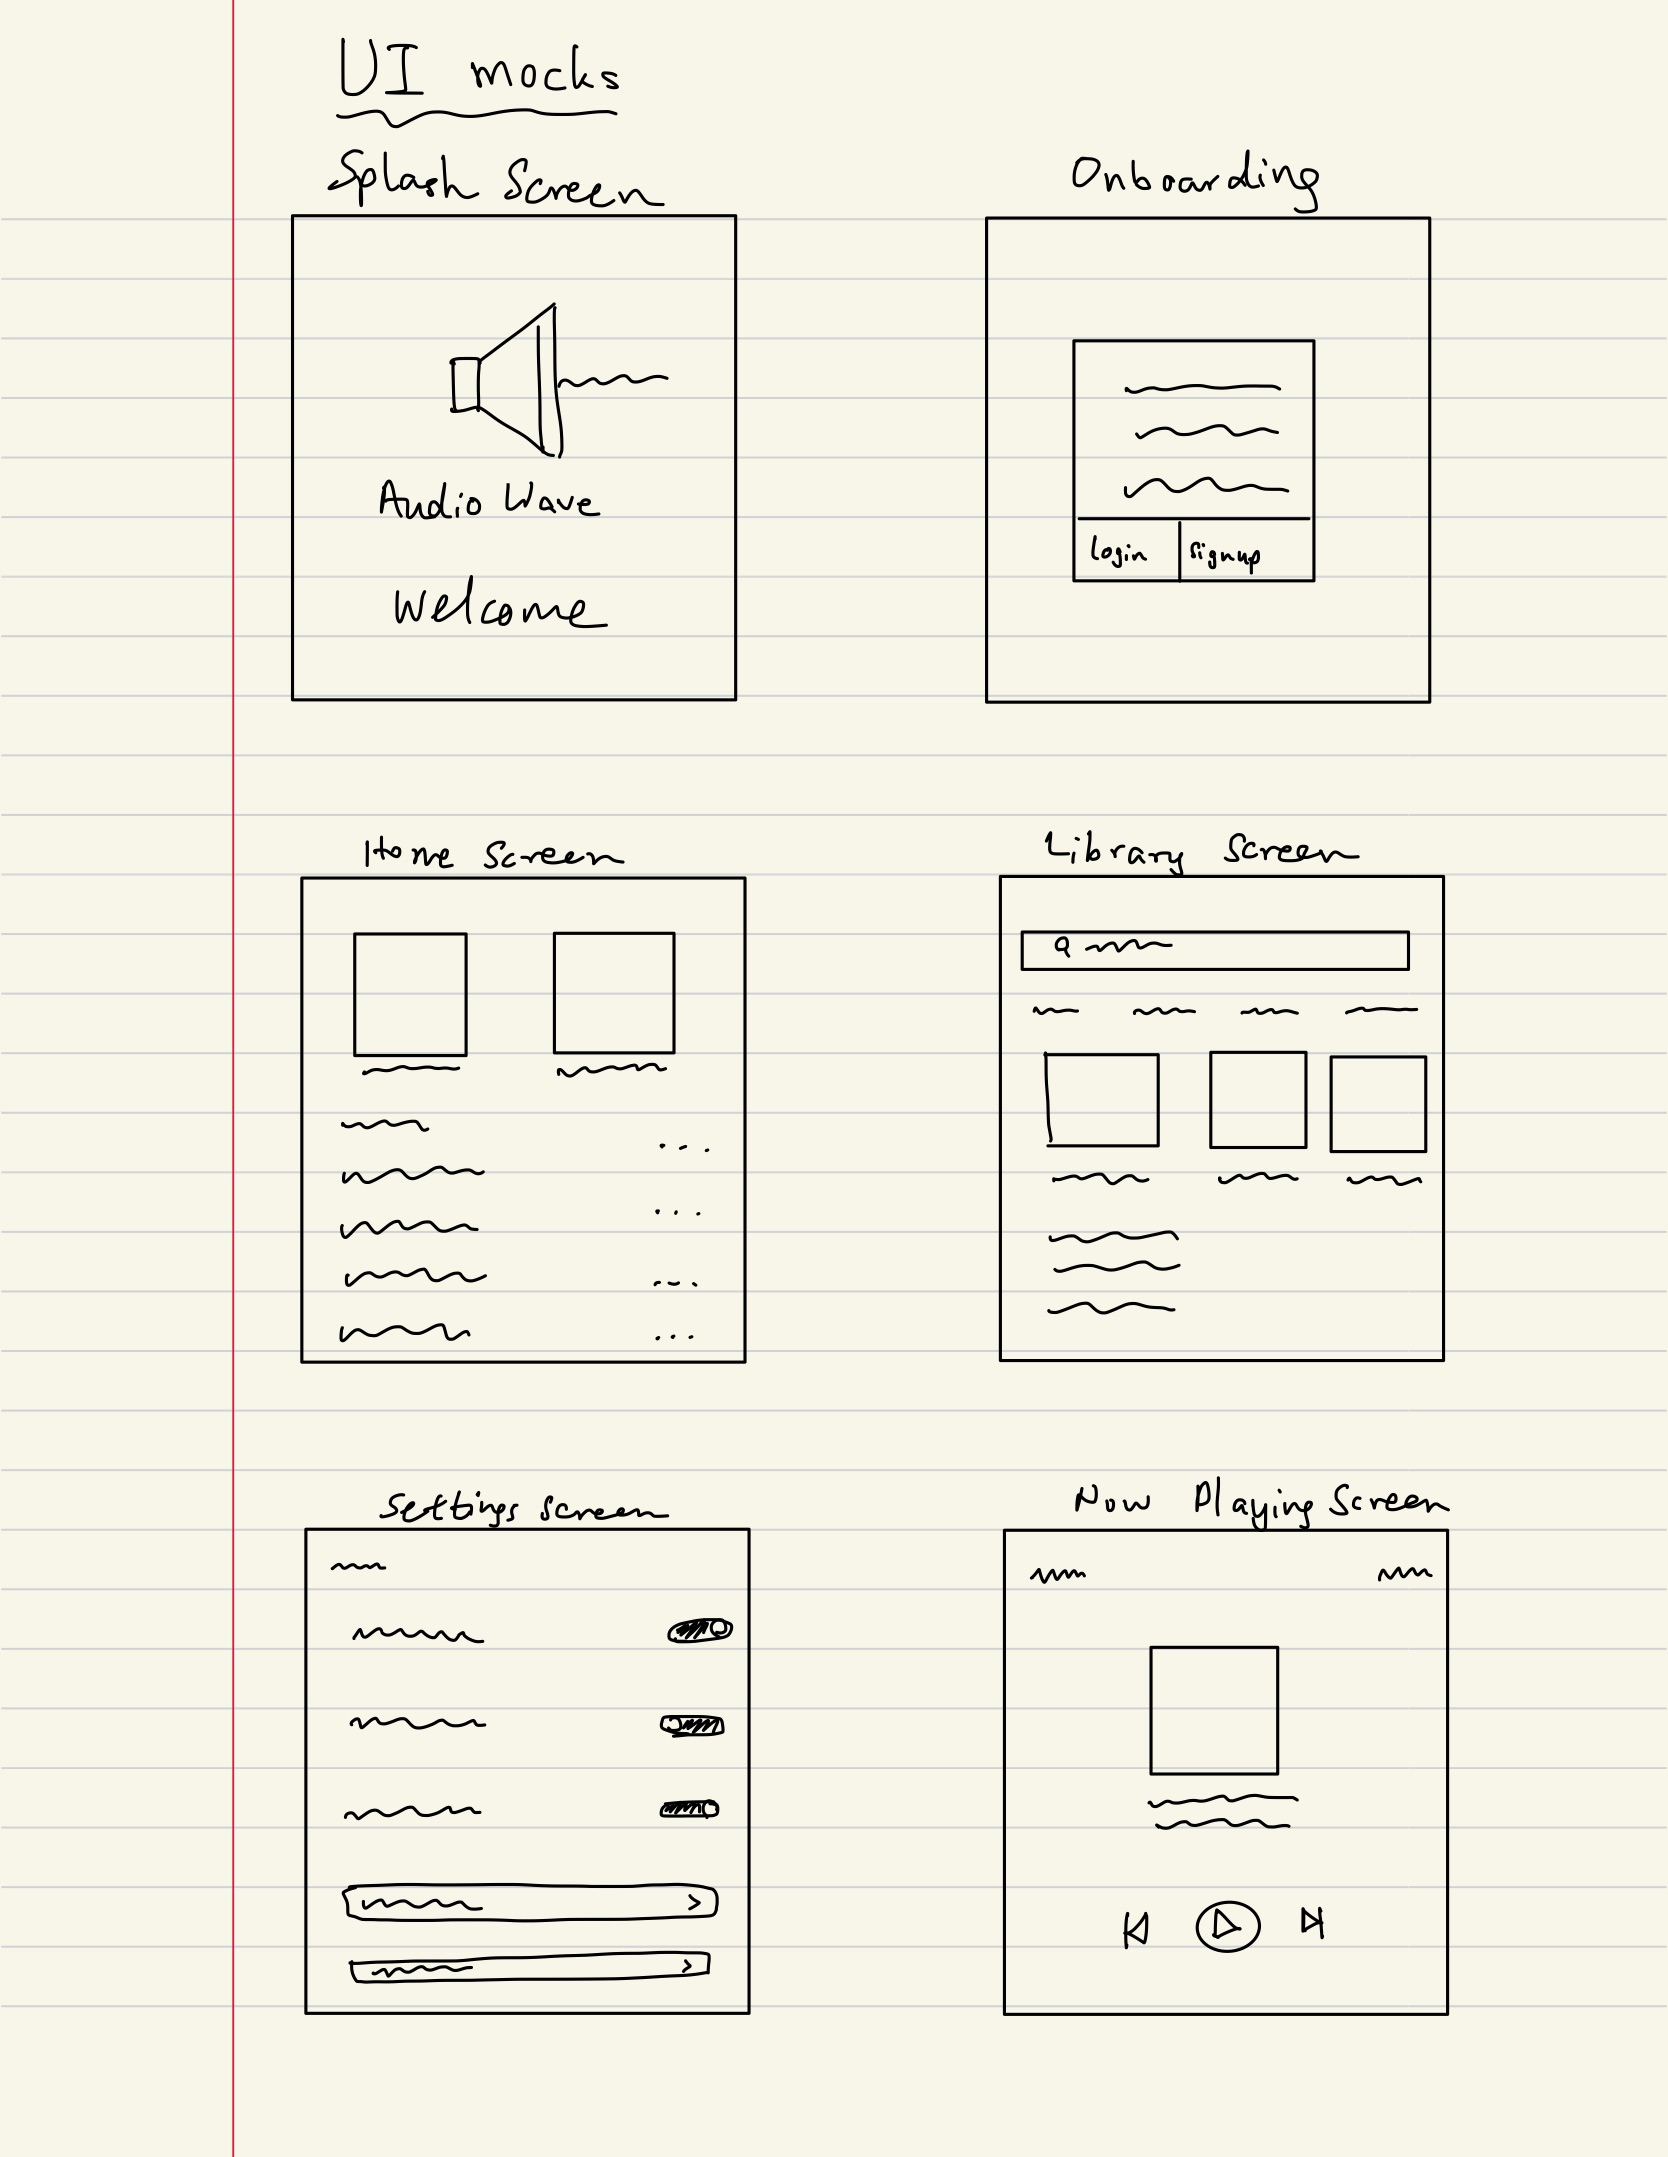 UI mocks
Splash Screen
Audio Wave
Welcome
Onboarding
Login Signup
Home Screen
Library Screen
Settings Screen
Now Playing Screen